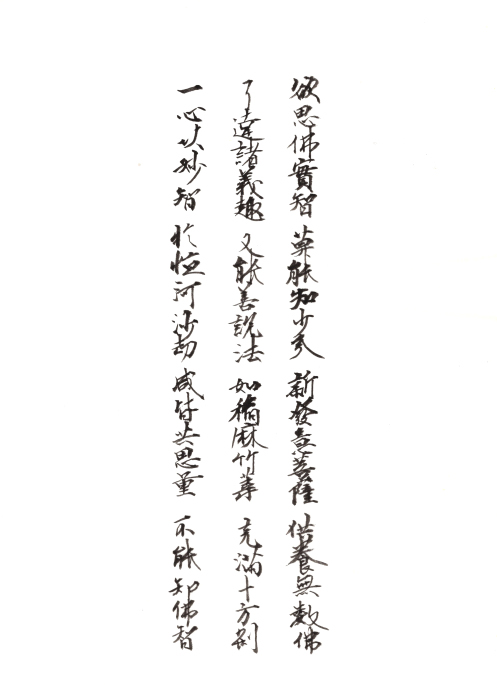 欲思佛實智 莫能知少分 新發意菩薩 供養無數佛
了達諸義趣 又能善說法 如稻麻竹葦 充滿十方刹
一心以妙智 於恒河沙劫 咸皆共思量 不能知佛智